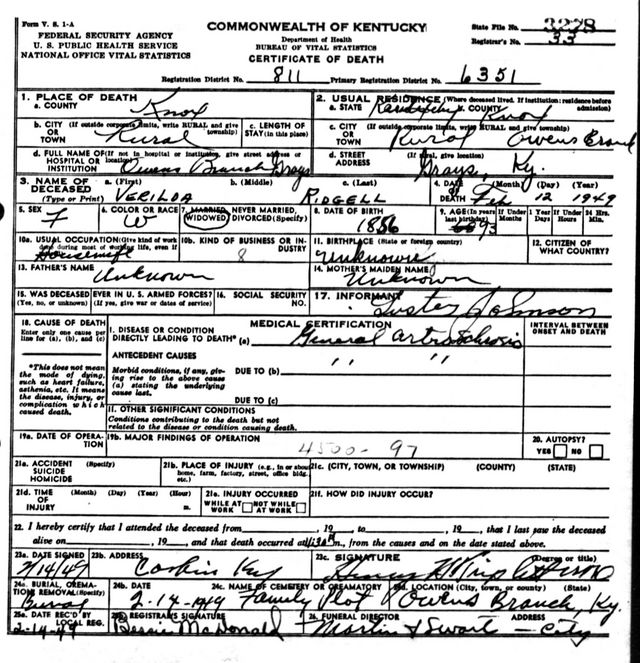 Form V. S. 1-A
COMMONWEALTH OF KENTUCKY
State File No. 3278
FEDERAL SECURITY AGENCY
Department of Health
Registrar's No. 33
U. S. PUBLIC HEALTH SERVICE
BUREAU OF VITAL STATISTICS
NATIONAL OFFICE VITAL STATISTICS
CERTIFICATE OF DEATH
Registration District No. 811 Primary Registration District No. 6351
1. PLACE OF DEATH
a. COUNTY Knox
2. USUAL RESIDENCE (Where deceased lived. If institution: residence before admission)
a. STATE Kentucky b. COUNTY Knox
b. CITY (If outside corporate limits, write RURAL and give township)
OR TOWN Rural
c. LENGTH OF STAY (in this place)
c. CITY (If outside corporate limits, write RURAL and give township)
OR TOWN Rural Owens Branch
d. FULL NAME OF (If not in hospital or institution, give street address or location)
HOSPITAL OR INSTITUTION Owens Branch Grays
d. STREET ADDRESS (If rural, give location)
Grays, Ky.
3. NAME OF DECEASED (Type or Print)
a. (First) VERILDA
b. (Middle)
c. (Last) RIDGELL
4. DATE OF DEATH (Month) (Day) (Year)
Feb 12 1949
5. SEX F
6. COLOR OR RACE W
7. MARRIED, NEVER MARRIED, WIDOWED, DIVORCED (Specify)
8. DATE OF BIRTH 1856
9. AGE (In years last birthday) 93
If Under 1 Year Months Days
If Under 24 Hrs. Hours Min.
10a. USUAL OCCUPATION (Give kind of work done during most of working life, even if retired)
Housewife
10b. KIND OF BUSINESS OR INDUSTRY
8
11. BIRTHPLACE (State or foreign country)
Unknown
12. CITIZEN OF WHAT COUNTRY?
13. FATHER'S NAME
Unknown
14. MOTHER'S MAIDEN NAME
Unknown
15. WAS DECEASED EVER IN U. S. ARMED FORCES?
(Yes, no, or unknown) (If yes, give war or dates of service)
16. SOCIAL SECURITY NO.
17. INFORMANT
Luster Johnson
18. CAUSE OF DEATH
Enter only one cause per line for (a), (b), and (c)
MEDICAL CERTIFICATION
INTERVAL BETWEEN ONSET AND DEATH
I. DISEASE OR CONDITION
DIRECTLY LEADING TO DEATH* (a) General
*This does not mean the mode of dying, such as heart failure, asthenia, etc. It means the disease, injury, or complication which caused death.
ANTECEDENT CAUSES
Morbid conditions, if any, giving rise to the above cause (a) stating the underlying cause last.
DUE TO (b) " "
DUE TO (c)
II. OTHER SIGNIFICANT CONDITIONS
Conditions contributing to the death but not related to the disease or condition causing death.
19a. DATE OF OPERATION
19b. MAJOR FINDINGS OF OPERATION
4500-97
20. AUTOPSY?
YES NO
21a. ACCIDENT SUICIDE HOMICIDE (Specify)
21b. PLACE OF INJURY (e.g., in or about home, farm, factory, street, office bldg. etc.)
21c. (CITY, TOWN, OR TOWNSHIP) (COUNTY) (STATE)
21d. TIME OF INJURY (Month) (Day) (Year) (Hour) m.
21e. INJURY OCCURRED
WHILE AT WORK NOT WHILE AT WORK
21f. HOW DID INJURY OCCUR?
22. I hereby certify that I attended the deceased from , 19 to , 19 , that I last saw the deceased
alive on , 19 , and that death occurred at m., from the causes and on the date stated above.
23a. DATE SIGNED 2/14/49
23b. ADDRESS Corbin Ky
23c. SIGNATURE (Degree or title)
24a. BURIAL, CREMATION, REMOVAL (Specify) Burial
24b. DATE 2-14-1949
24c. NAME OF CEMETERY OR CREMATORY Family Plot
24d. LOCATION (City, town, or county) (State)
Owens Branch, Ky.
25a. DATE REC'D BY LOCAL REG. 2-14-49
25b. REGISTRAR'S SIGNATURE Bessie McDonald
26. FUNERAL DIRECTOR ADDRESS
Martin & Swarts - City